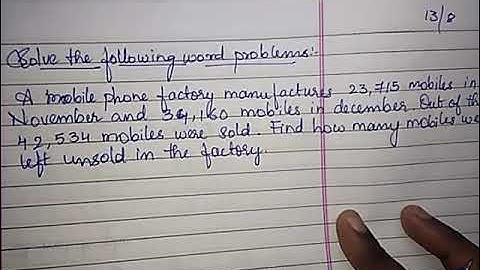 13/8
Solve the following word problems:-
A mobile phone factory manufactures 23,715 mobiles in
November and 34,160 mobiles in december. Out of th
42,534 mobiles were sold. Find how many mobiles we
left unsold in the factory.